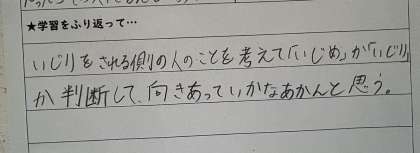 ★学習をふり返って…
いじりをされる側の人のことを考えて「いじめ」か「いじり」
か判断して、向きあっていかなあかんと思う。